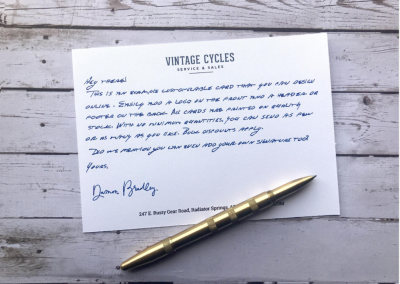 VINTAGE CYCLES
SERVICE & SALES
HEY THERE!
THIS IS AN EXAMPLE CARD THAT YOU CAN DESIGN
ONLINE. EASILY ADD A LOGO ON THE FRONT AND A HEADER OR
FOOTER ON THE BACK. ALL CARDS ARE PRINTED ON QUALITY
STOCK. WITH NO MINIMUM QUANTITIES, YOU CAN SEND AS FEW
OR AS MANY AS YOU LIKE. BULK DISCOUNTS APPLY.
DID WE MENTION YOU CAN EVEN ADD YOUR OWN SIGNATURE TOO?
YOURS,
Damon Bradley
247 E. Rusty Gear Road, Radiator Springs,